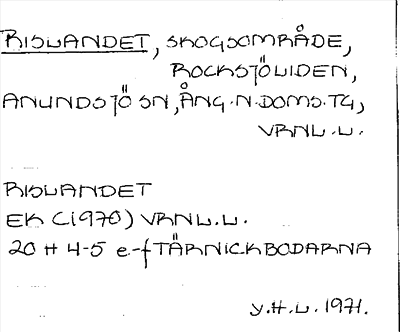 RISLANDET, SKOGSOMRÅDE,
ROCKSJÖLIDEN,
ANUNDSJÖ SN, ÅNG.N.DOMS.TG,
VRNL.L.
RISLANDET
EK (1970) VRNL.L.
20 H 4-5 e-f TÄRNICKBODARNA
Y.H.L. 1971.